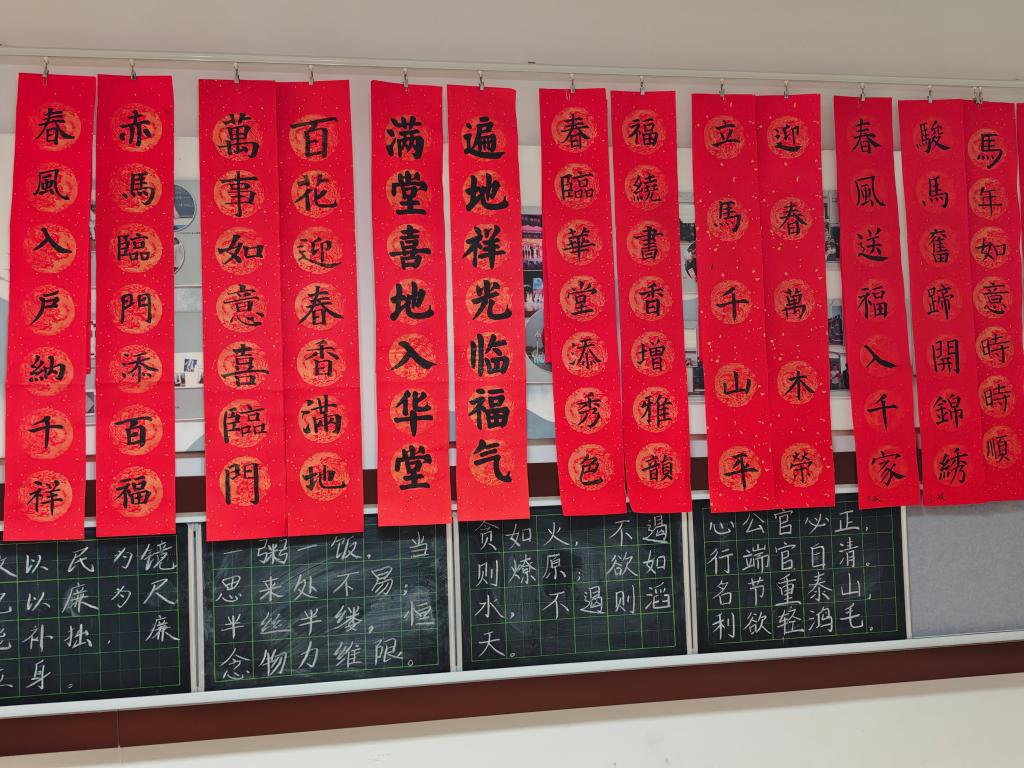 春風入戶納千祥
赤馬臨門添百福
萬事如意喜臨門
百花迎春香滿地
满堂喜地入华堂
遍地祥光临福气
春臨華堂添秀色
福繞書香增雅韻
立馬千山平
迎春萬木榮
春風送福入千家
駿馬奮蹄開錦綉
馬年如意時時順
以民为镜
以廉为尺
补拙，廉
身。
一粥一饭，当
思来处不易；
半丝半缕，恒
念物力维限。
贪如火，不遏
则燎原；欲如
水，不遏则滔
天。
心公官必正，
行端官自清。
名节重泰山，
利欲轻鸿毛。